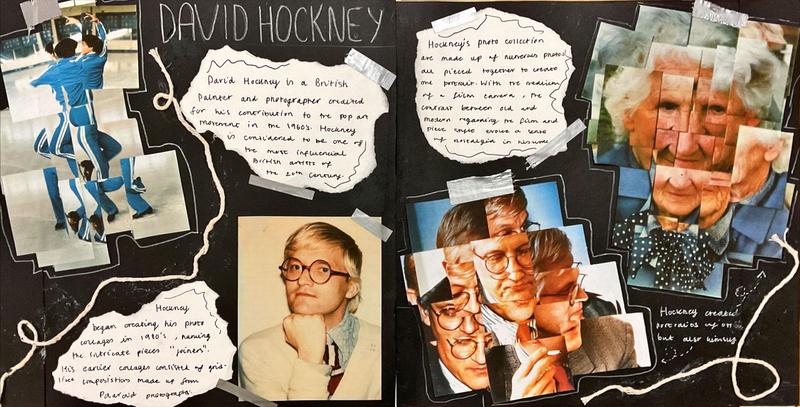 DAVID HOCKNEY
David Hockney is a British
Painter and photographer credited
for his contribution to the pop art
movement in the 1960s. Hockney
is considered to be one of
the most influencial
British artists of
the 20th Century.
Hockney
began creating his photo
collages in 1980's, naming
the intricate pieces "joiners".
His earlier collages consisted of grid-
like compositions made up from
Polaroid photographs.
Hockney's photo collection
are made up of numerous photos
all pieced together to create
one portrait. With the medium
of a film camera, the
contrast between old and
modern regarding the film and
piece style evoke a sense
of nostalgia in
Hockney created
portraits of
but also himself